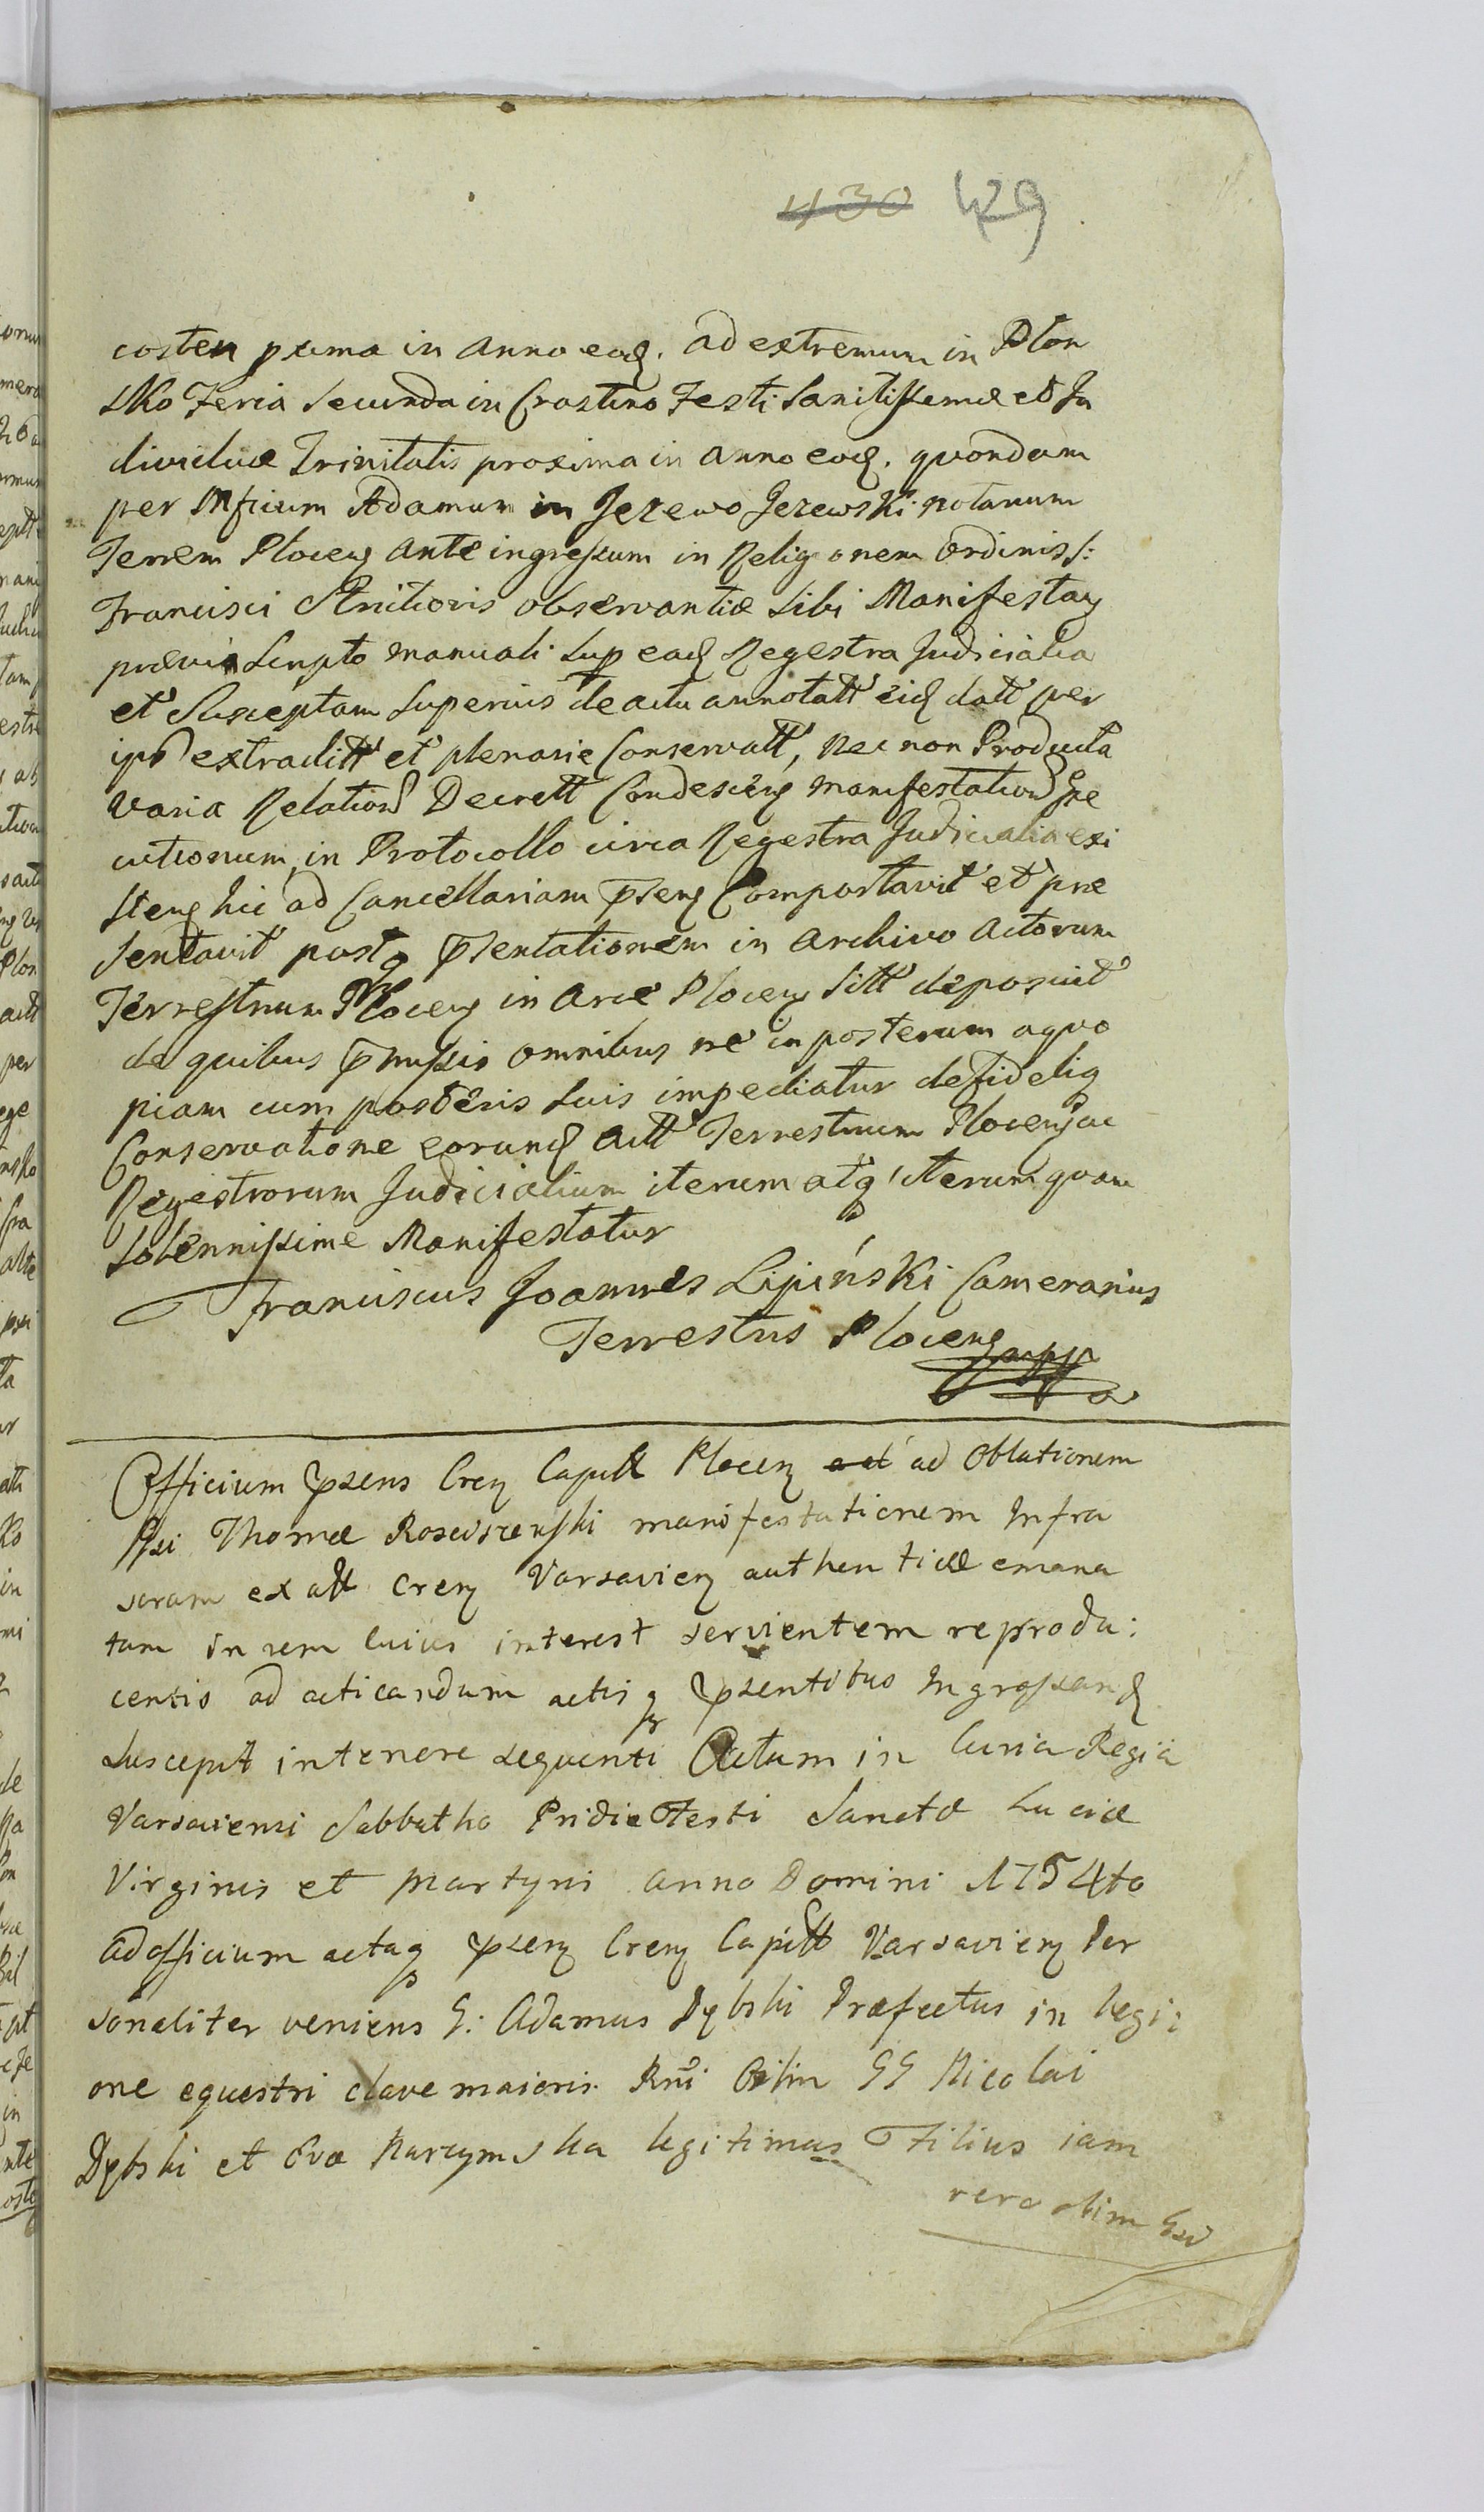 430 429
costen pxma in Anno eod. ad extremum in Plon
sko Feria Secunda in Crastino Festi Sanctissimæ et In
dividuæ Trinitatis proxima in anno eod. quondam
per Mficum Adamum in Jezewo Jezewski notarium
Terrem Plocen ante ingressum in Religionem Ordinis S:
Francisci Strictioris observantiæ Sibi Manifestan
prævia Scripto manuali Sup ead Regestra Judicialia
et Susceptam Superius de actu annotatt eid datt per
ipd extraditt et plenarie Conservatt, nec non Producta
varia Relation Decrett Condescen manifestation
cutionum in Protocollo circa Regestra Judicialia exi
sten hic ad Cancellariam psen Comportavit et præ
sentavit postq psentationem in Archivo Actorum
Terrestrium Plocen in Arce Plocen Sitt deposuit
de quibus pmissis omnibus ne in posterum aquo
piam cum posteris Suis impediatur de fideliq
Conservatione eorund Actt Terrestrium Plocen ac
Regestrorum Judicialium iterum atq iterum quam
Solennissime Manifestatur
Franciscus Joannes Lipiński Camerarius
Terrestris Plocen
Officium psens Cren Capitt Plocen ad Oblationem
Thomæ Rosciszewski manifestationem Infra
scram ex actt Cren Varsavien authentice emana
tam in rem cuius interest servientem reprodu:
centis ad acticandum actisq psentibus Ingrossand
Suscepit in tenore sequenti Actum in Curia Regia
Varsaviensi Sabbatho Pridie Festi Sanctæ Luciæ
Virginis et Martyris anno Domini 1754to
ad officium actaq psen Cren Capitt Varsavien Per
sonaliter veniens G: Adamus Dębski Præfectus in legi:
one equestri clave maioris Rni Olim GG Nicolai
Dębski et Evæ legitimus Filius iam
vero olim